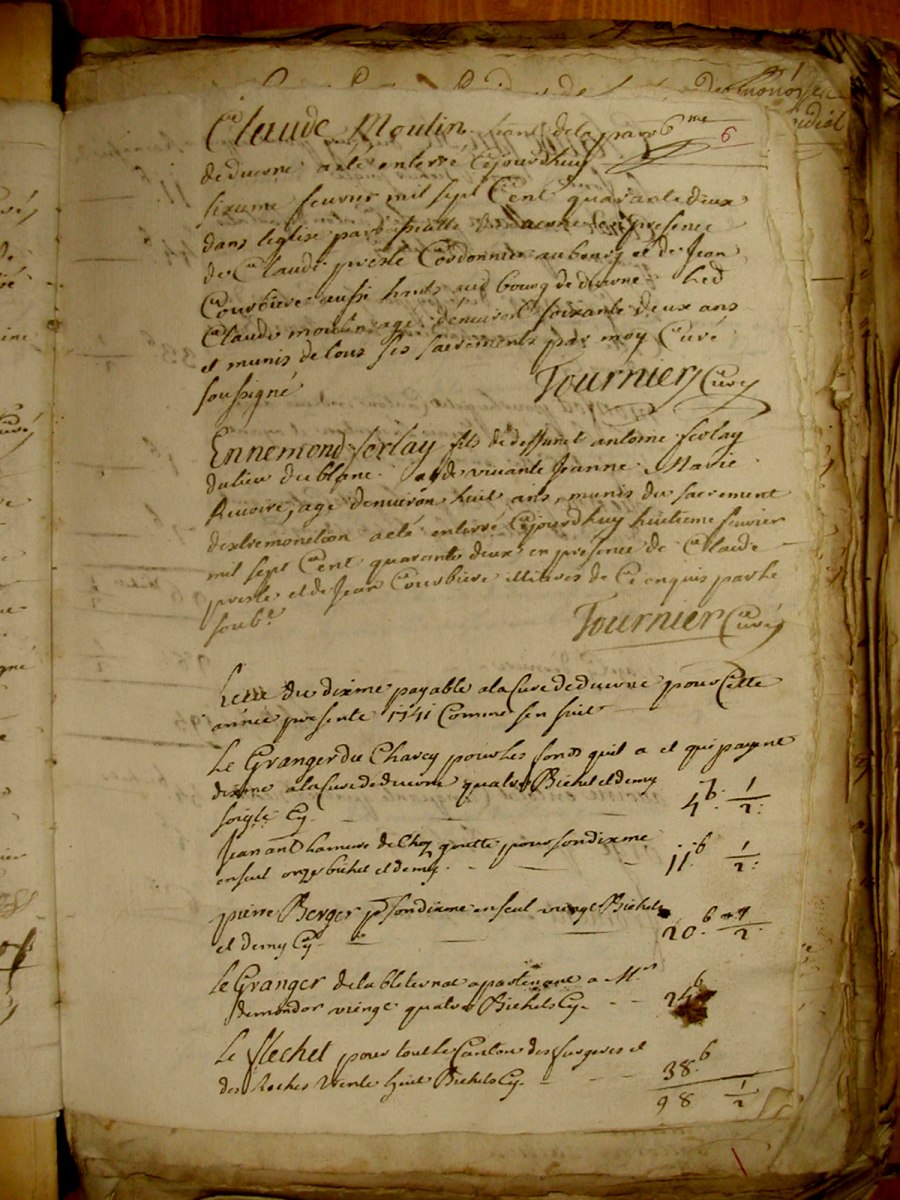 6me
6
Claude Moulin hant de la parr
de duerne a eté enterré Cejourdhuy
sixieme feuvrier mil sept Cent quarante deux
dans leglise paroissialle de duerne en presence
de Claude presle Cordonnier au bourg et de Jean
Courbiere aussi hants aud bourg de duerne Led
Claude moulin agé denuiron soixante deux ans
et munis de tous ses sacrements par moy Curé
soussigné Tournier Curé
Ennemond ferlay fils de deffunct antoine ferlay
du lieu du blanc et de viuante Jeanne Marie
Riuoire, agé denuiron huit ans, munis du sacrement
dextremonction a eté enterré Cejourdhuy huitieme feuvrier
mil sept Cent quarante deux en presence de Claude
presle et de Jean Courbiere illiteres de Ce enquis par le
soubé
Tournier Curé
Leue du dixme payable a la Cure de duerne pour Cette
année presente 1741 Comme sen suit
Le Granger du Charcy pour les fonds quil a et qui payent
dixme a la Cure de duerne quatre Bichet et demy
soigle Cy 4b 1/2
Jean ant de Choz goutte pour son dixme
en seul onze bichet et demy 11b 1/2
pierre Berger p son dixme en seul vingt Bichets
et demy Cy 20b 1/2
Le Granger de la apartenant a Mr
demondor vingt quatre Bichets Cy 24b
Le flechet pour tout le Canton des fargeres et
des Roches trente huit Bichets Cy 38b
98 1/2